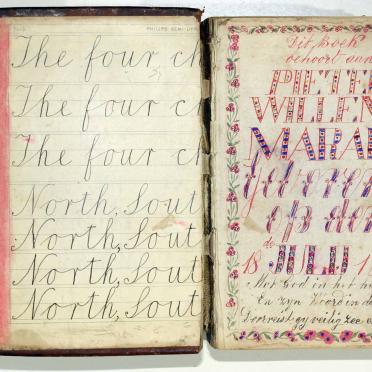 The four ch
The four ch
The four ch
North, Sout
North, Sout
North, Sout
North, Sout
Dit boek
behoort aan
PIETE
WILLEM
MARAI
Geboren
op den
18de JULIJ 1
Met God in het h
En zyn Woord in de
Doorreist gy veilig zee e